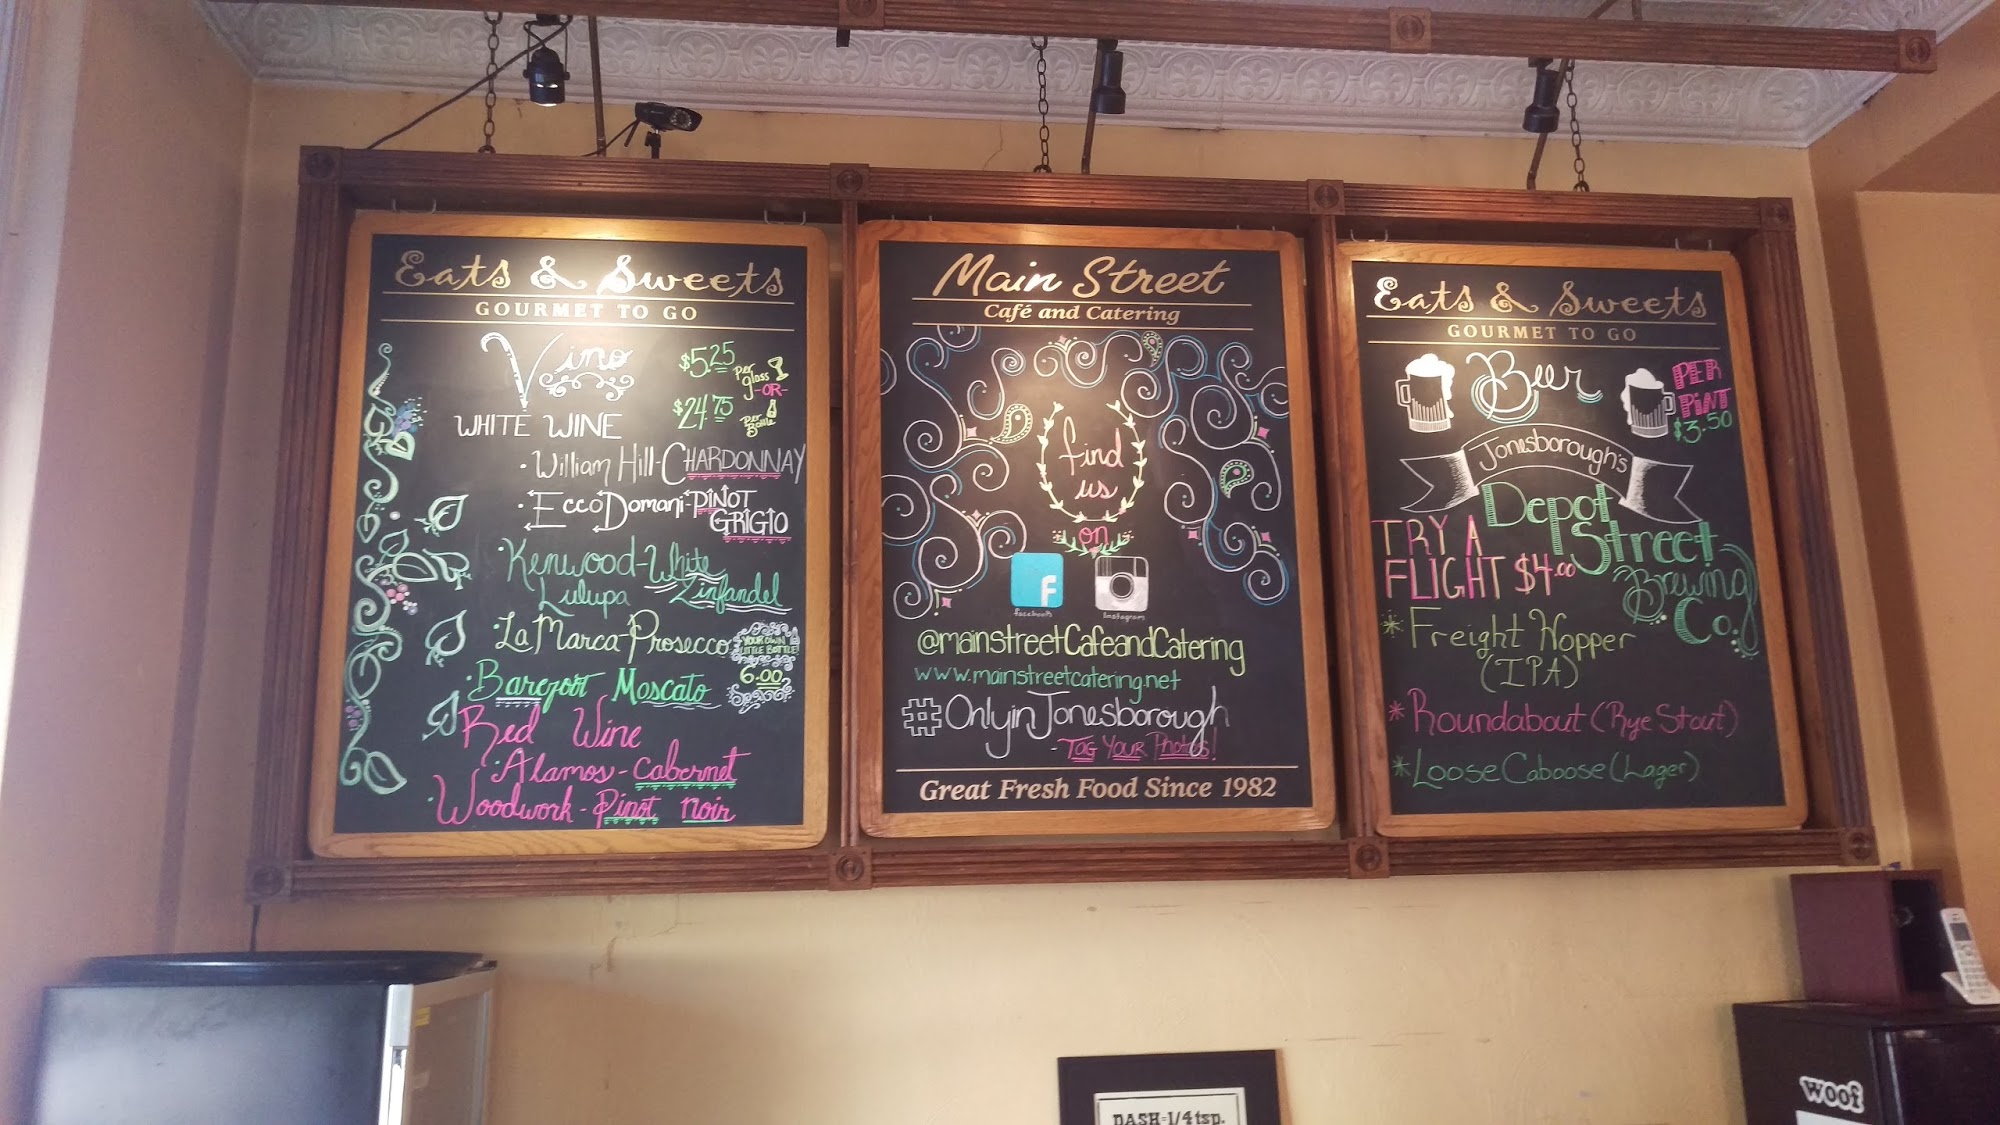 Eats & Sweets
GOURMET TO GO
Vino
$5.25
Per
glass
-OR-
$24.75
Per
Bottle
WHITE WINE
·William Hill-CHARDONNAY
·Ecco Domani-PINOT
GRIGIO
·Kenwood-White
Lulupa Zinfandel
·La Marca-Prosecco
YOUR OWN
LITTLE BOTTLE!
6.00
·Barefoot Moscato
Red Wine
·Alamos-Cabernet
·Woodwork-Pinot Noir
Main Street
Café and Catering
find
us
on
facebook
Instagram
@mainstreetCafeandCatering
www.mainstreetcatering.net
#OnlyinJonesborough
-TAG YOUR Photos!
Great Fresh Food Since 1982
Eats & Sweets
GOURMET TO GO
Beer
PER
PiNT
$3.50
Jonesborough's
Depot
Street
Brewing
Co.
TRY A
FLIGHT $4.00
*Freight Hopper
(IPA)
*Roundabout (Rye Stout)
*Loose Caboose (Lager)
DASH=1/4 tsp.
woof